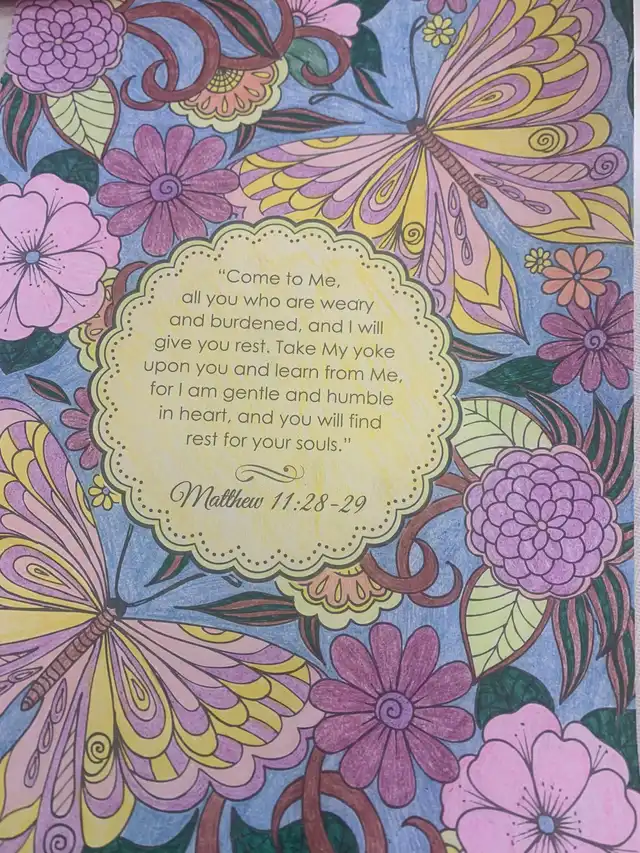 “Come to Me,
all you who are weary
and burdened, and I will
give you rest. Take My yoke
upon you and learn from Me,
for I am gentle and humble
in heart, and you will find
rest for your souls.”
Matthew 11:28-29